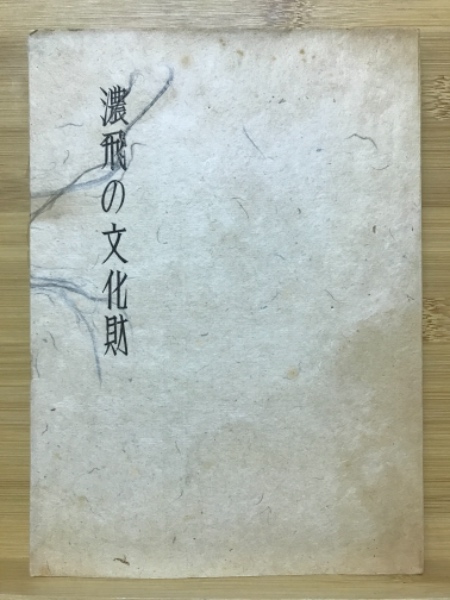 濃飛の文化財